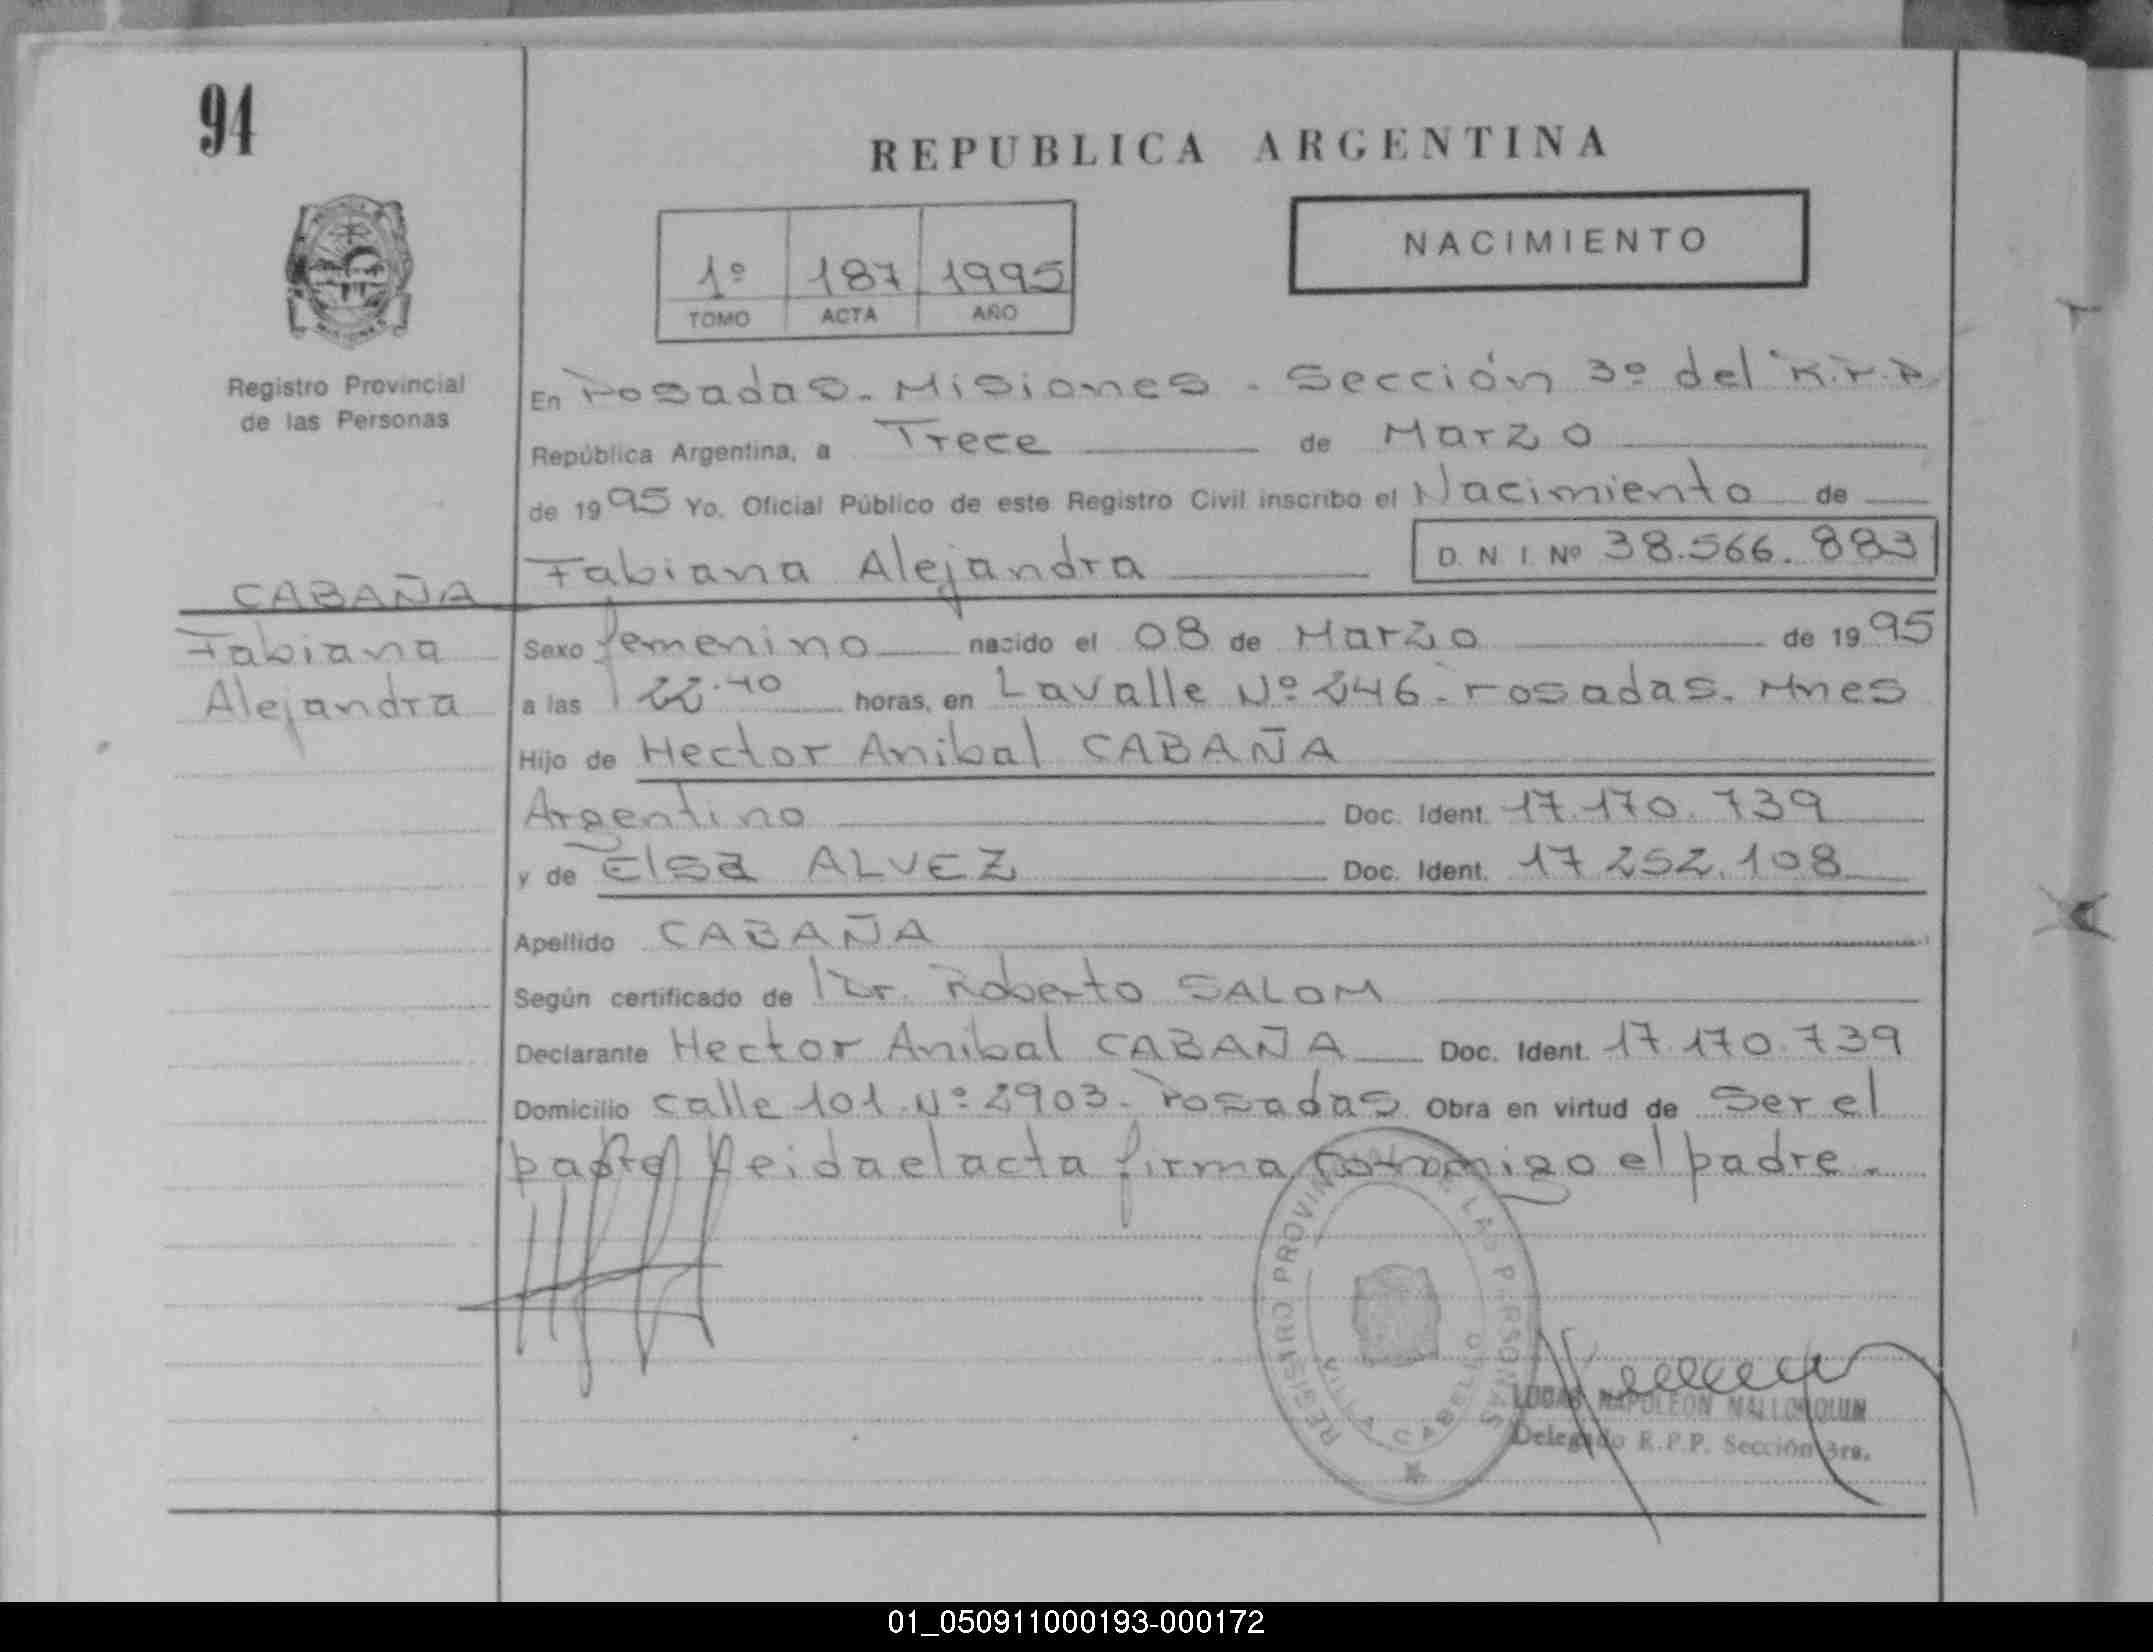 94
REPUBLICA ARGENTINA
1º 187 1995
TOMO ACTA AÑO
NACIMIENTO
Registro Provincial
de las Personas
En Posadas. Misiones. Sección 3º del R.P.P.
República Argentina, a Trece de Marzo
de 1995 Yo. Oficial Público de este Registro Civil inscribo el Nacimiento de
Fabiana Alejandra D. N. I. Nº 38.566.883
CABAÑA
Fabiana
Alejandra
Sexo femenino nacido el 08 de Marzo de 1995
a las 22.40 horas, en Lavalle Nº 246. Posadas. Mnes
Hijo de Hector Anibal CABAÑA
Argentino Doc. Ident. 17.170.739
y de Elsa ALVEZ Doc. Ident. 17.252.108
Apellido CABAÑA
Según certificado de Dr. Roberto SALOM
Declarante Hector Anibal CABAÑA Doc. Ident. 17.170.739
Domicilio calle 101 Nº 2903. Posadas Obra en virtud de Ser el
padre leida el acta firma conmigo el padre.
REGISTRO PROVINCIAL DE LAS PERSONAS
VILLA CABELLO
LUCAS NAPOLEON
Delegado R.P.P. Sección 3ra.
01_050911000193-000172